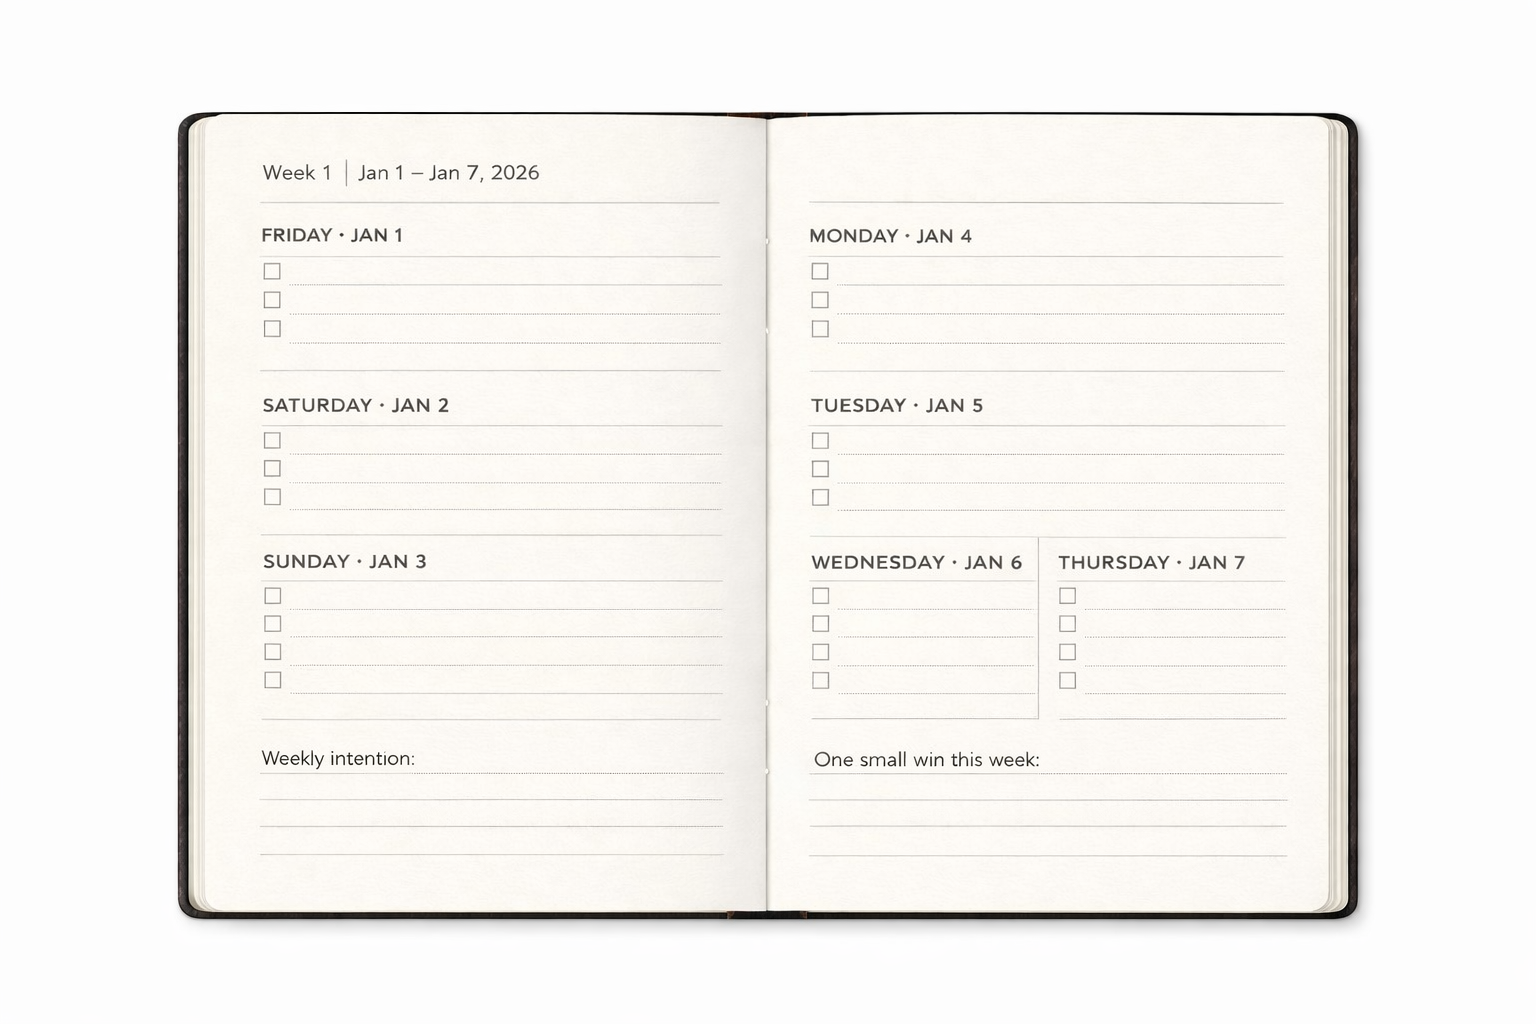 Week 1 | Jan 1 – Jan 7, 2026
FRIDAY · JAN 1
SATURDAY · JAN 2
SUNDAY · JAN 3
Weekly intention:
MONDAY · JAN 4
TUESDAY · JAN 5
WEDNESDAY · JAN 6
THURSDAY · JAN 7
One small win this week: